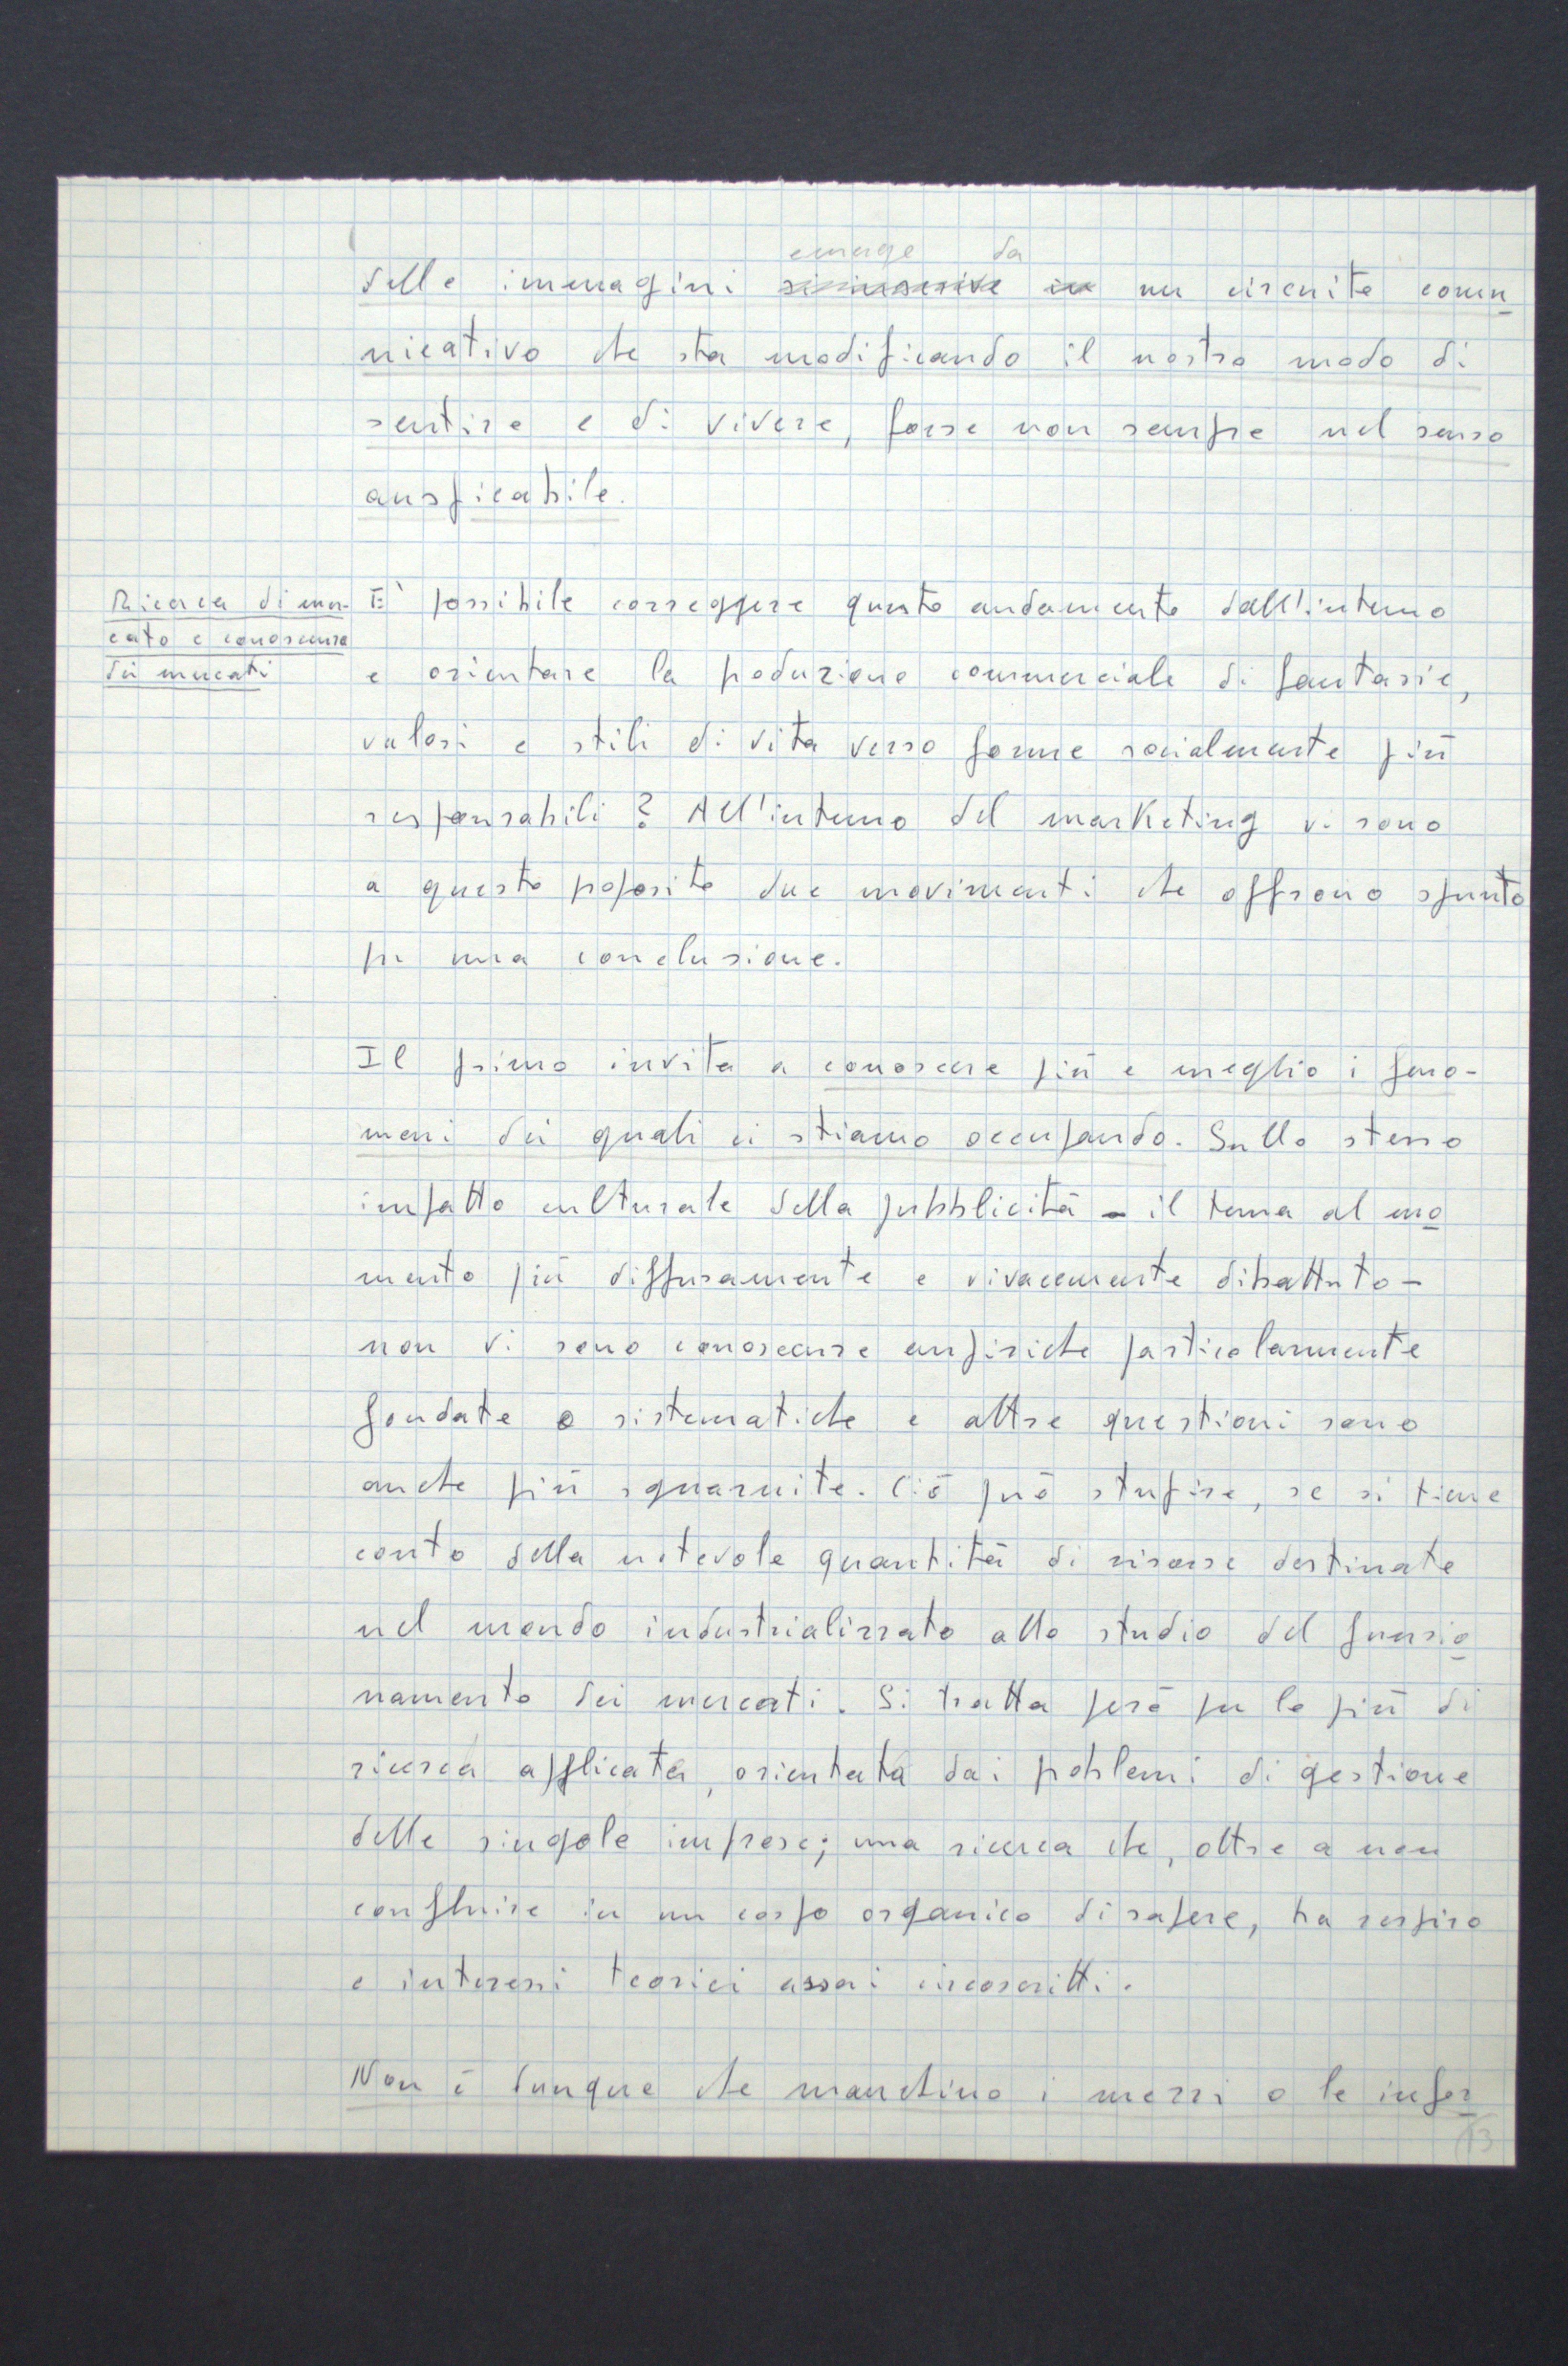 emerge da
delle immagini si inscrive in un circuito comu
nicativo che sta modificando il nostro modo di
sentire e di vivere, forse non sempre nel senso
auspicabile.
Ricerca di mer-
cato e conoscenza
dei mercati
E' possibile correggere questo andamento dall'interno
e orientare la produzione commerciale di fantasie,
valori e stili di vita verso forme socialmente più
responsabili? All'interno del marketing vi sono
a questo proposito due movimenti che offrono spunto
per una conclusione.
Il primo invita a conoscere più e meglio i feno-
meni dei quali ci stiamo occupando. Sullo stesso
impatto culturale della pubblicità - il tema al mo
mento più diffusamente e vivacemente dibattuto -
non vi sono conoscenze empiriche particolarmente
fondate o sistematiche e altre questioni sono
anche più sguarnite. Ciò può stupire, se si tiene
conto della notevole quantità di risorse destinate
nel mondo industrializzato allo studio del funzio
namento dei mercati. Si tratta però per lo più di
ricerca applicata, orientata dai problemi di gestione
delle singole imprese; una ricerca che, oltre a non
confluire in un corpo organico di sapere, ha respiro
e interessi teorici assai circoscritti.
Non è dunque che manchino i mezzi o le infor
13